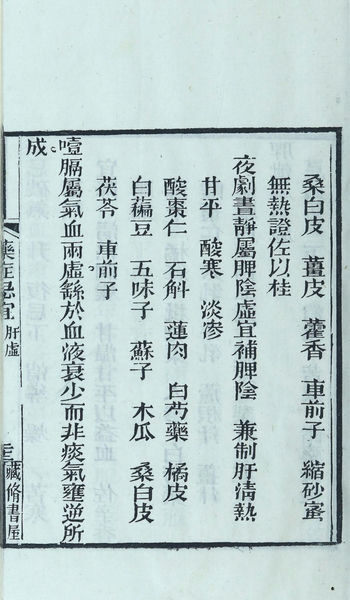 桑白皮　薑皮　藿香　車前子　縮砂蜜
無熱證佐以桂
夜劇晝靜屬脾陰虛宜補脾陰　兼制肝清熱
甘平　酸寒　淡滲
酸棗仁　石斛　蓮肉　白芍藥　橘皮
白藊豆　五味子　蘇子　木瓜　桑白皮
茯苓　車前子
噎膈屬氣血兩虛繇於血液衰少而非痰氣壅逆所
成
藥症忌宜　肝虛
藏脩書屋